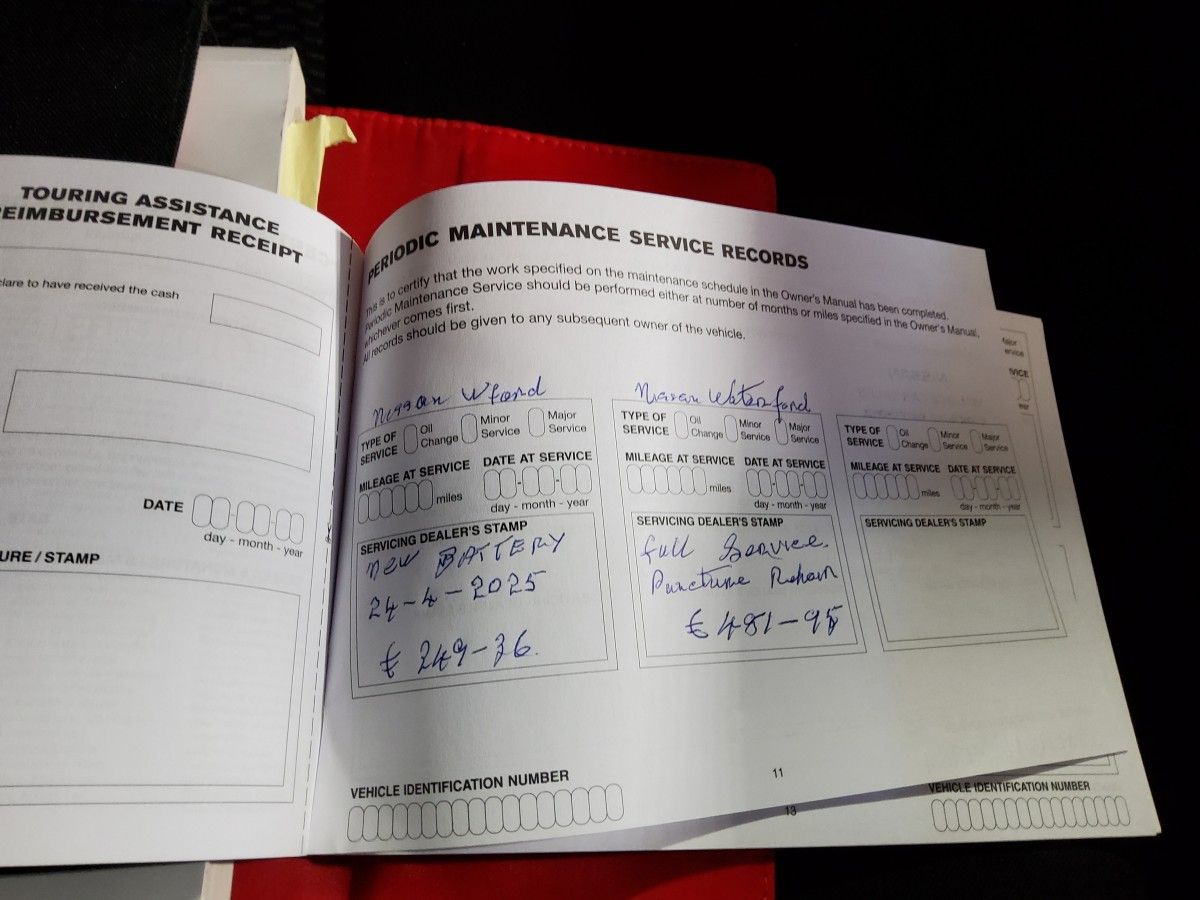 TOURING ASSISTANCE
REIMBURSEMENT RECEIPT
clare to have received the cash
DATE
day - month - year
URE / STAMP
PERIODIC MAINTENANCE SERVICE RECORDS
This is to certify that the work specified on the maintenance schedule in the Owner's Manual has been completed.
Periodic Maintenance Service should be performed either at number of months or miles specified in the Owner's Manual,
whichever comes first.
All records should be given to any subsequent owner of the vehicle.
Nissan W'ford
TYPE OF SERVICE
Oil Change
Minor Service
Major Service
MILEAGE AT SERVICE
miles
DATE AT SERVICE
day - month - year
SERVICING DEALER'S STAMP
New BATTERY
24-4-2025
€ 249-36.
Nissan Waterford
TYPE OF SERVICE
Oil Change
Minor Service
Major Service
MILEAGE AT SERVICE
miles
DATE AT SERVICE
day - month - year
SERVICING DEALER'S STAMP
full Service
Puncture Repair
€ 481-95
TYPE OF SERVICE
Oil Change
Minor Service
Major Service
MILEAGE AT SERVICE
miles
DATE AT SERVICE
day - month - year
SERVICING DEALER'S STAMP
VEHICLE IDENTIFICATION NUMBER
11
13
VEHICLE IDENTIFICATION NUMBER